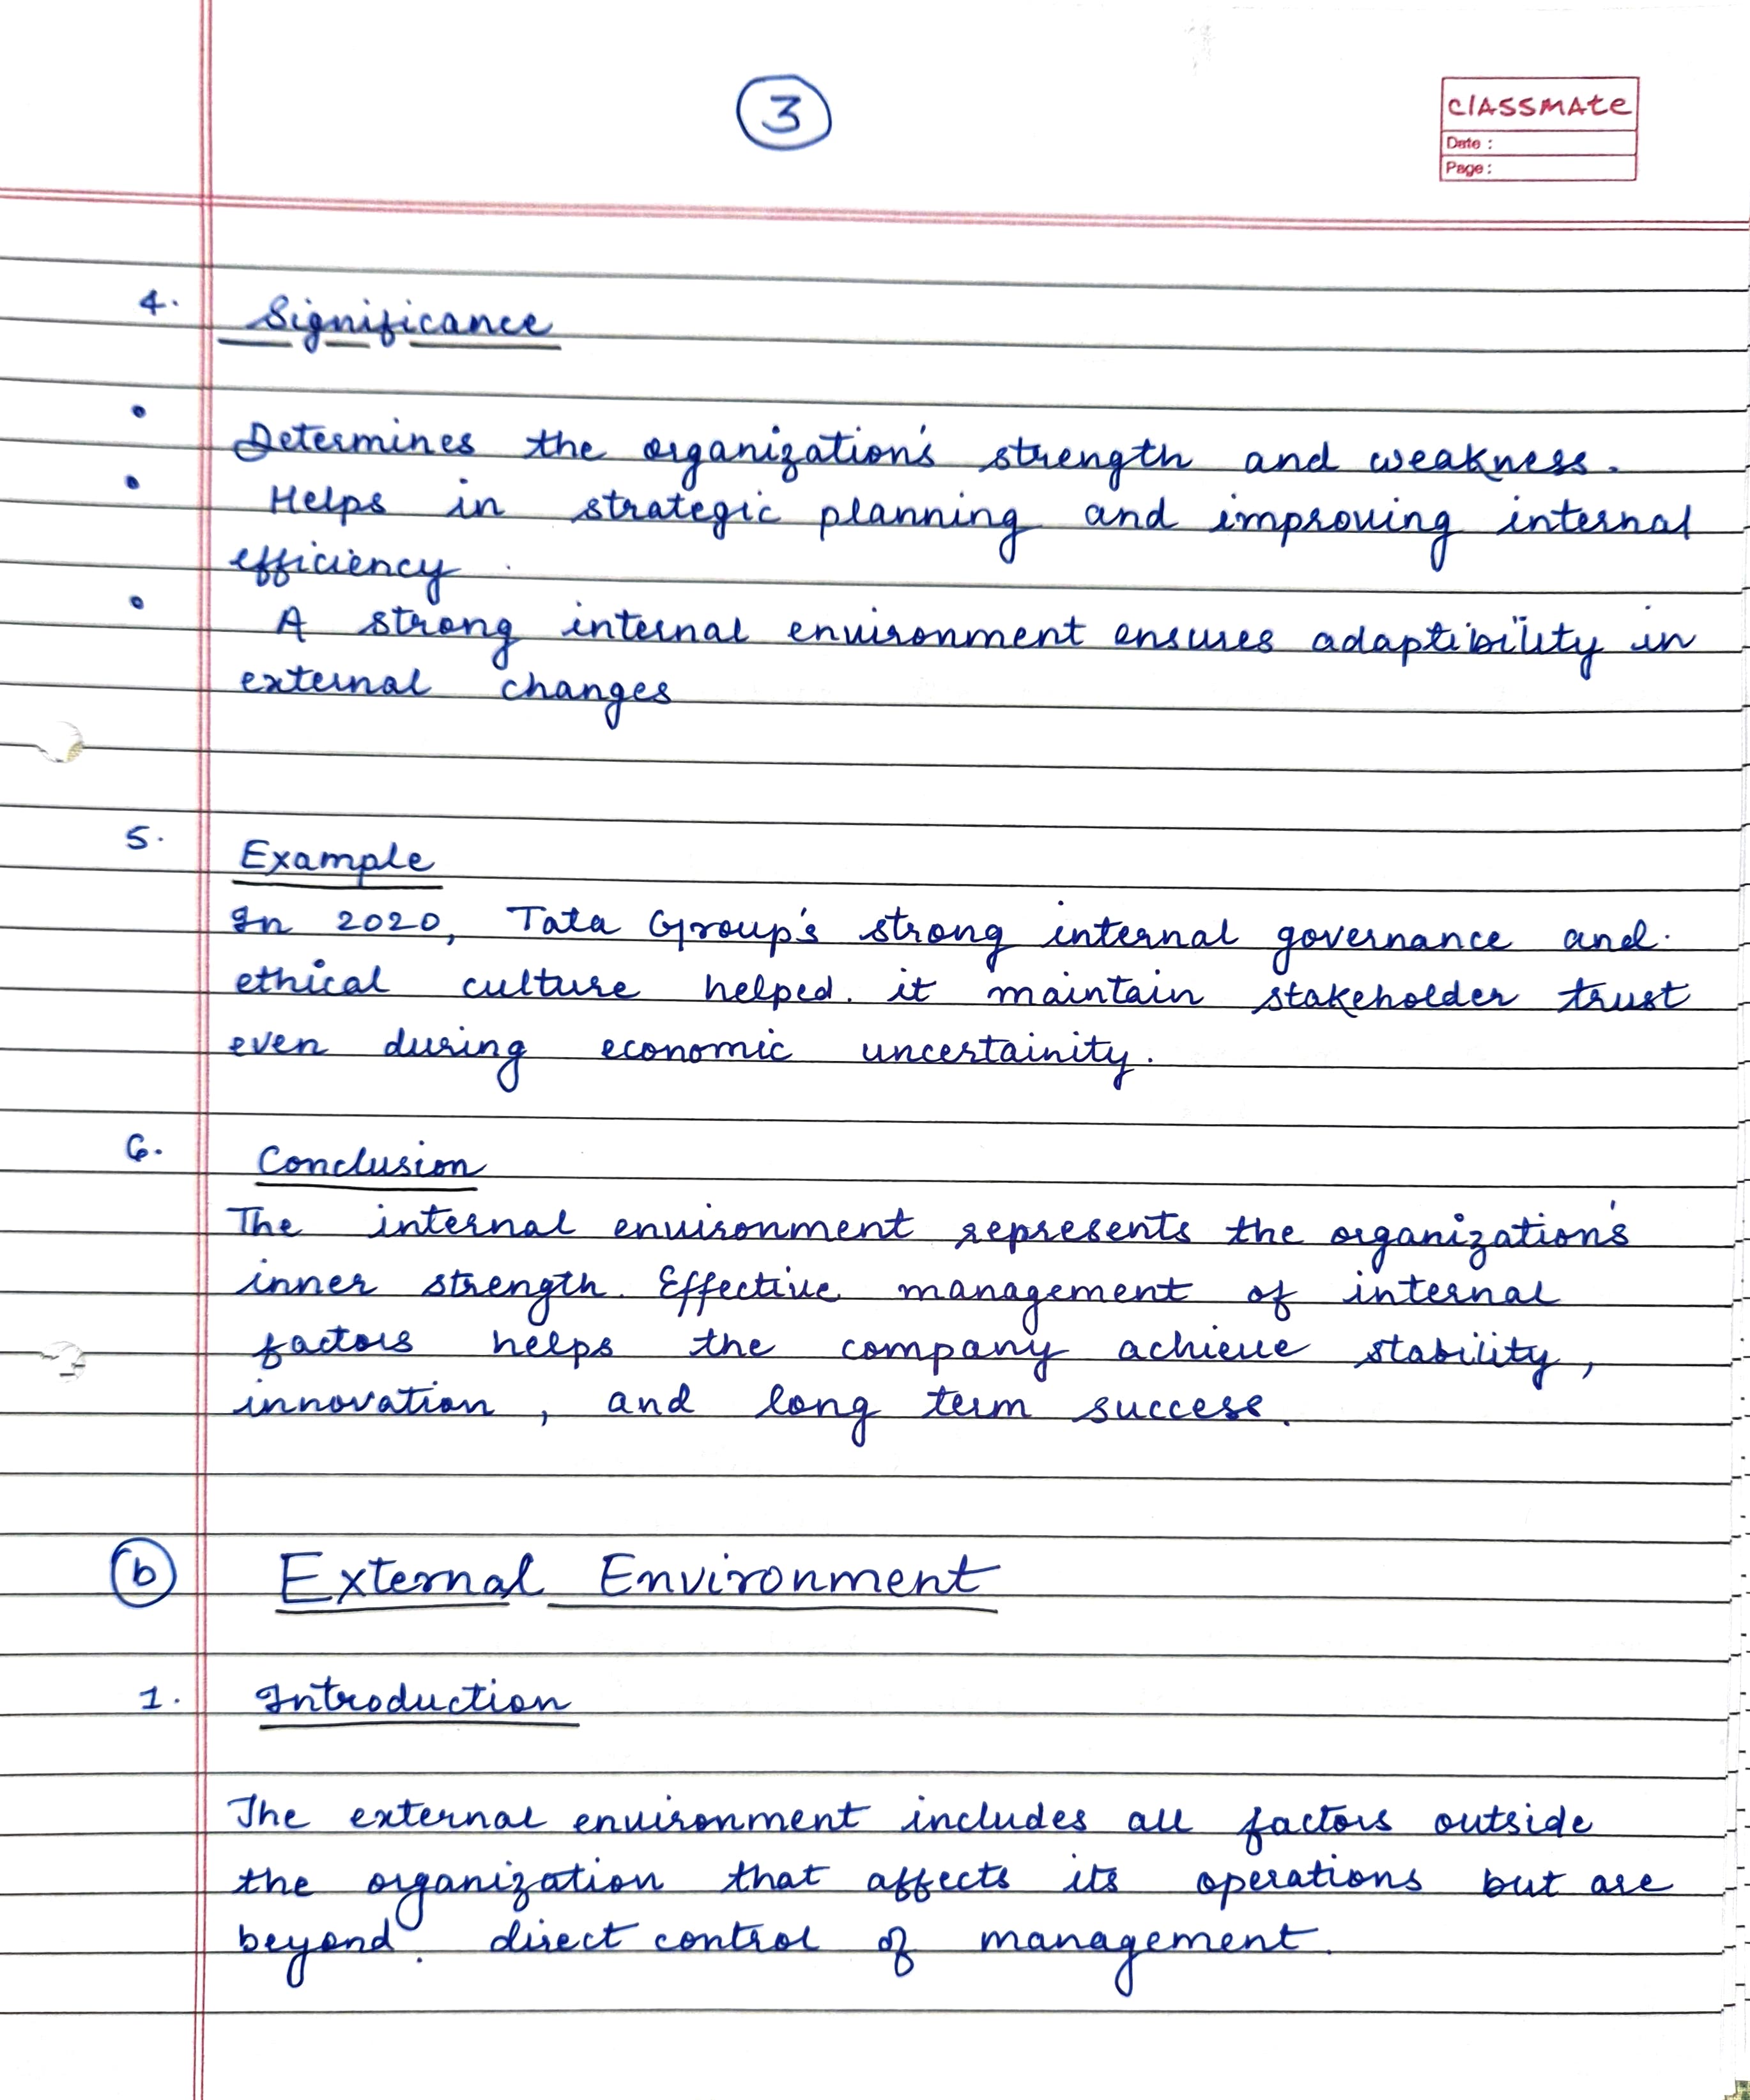 3
CLASSMATE
Date :
Page :
4. Significance
• Determines the organization's strength and weakness.
• Helps in strategic planning and improving internal
efficiency.
• A strong internal environment ensures adaptibility in
external changes
5. Example
In 2020, Tata Group's strong internal governance and
ethical culture helped it maintain stakeholder trust
even during economic uncertainity.
6. Conclusion
The internal environment represents the organization's
inner strength. Effective management of internal
factors helps the company achieve stability,
innovation, and long term success.
b External Environment
1. Introduction
The external environment includes all factors outside
the organization that affects its operations but are
beyond direct control of management.